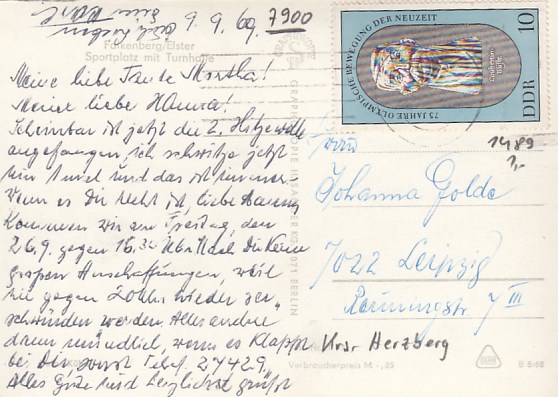 9. 9. 69. 7900
Falkenberg/Elster
Sportplatz mit Turnhalle
Meine liebe Tante Martha!
Meine liebe Hanna!
Scheinbar ist jetzt die 2. Hitzewelle
angefangen, ich schwitze jetzt
und das ist immer
Wenn es Dir recht ist, liebe Hanna,
kommen wir am Freitag, den
26.9. gegen 16.32 Uhr
großen Anschaffungen, weil
wir gegen 20 Uhr wieder ver-
schwinden werden. Alles andere
dann mündlich, wenn es klappt
bei Dir, sonst Telef. 27429.
Alles Gute und herzlichst grüßt
75 JAHRE OLYMPISCHE BEWEGUNG DER NEUZEIT
DDR 10
1489
1,-
Frau
Johanna Golde
7022 Leipzig
7 III
Krs. Herzberg
Verbraucherpreis M -,25
B 5/68